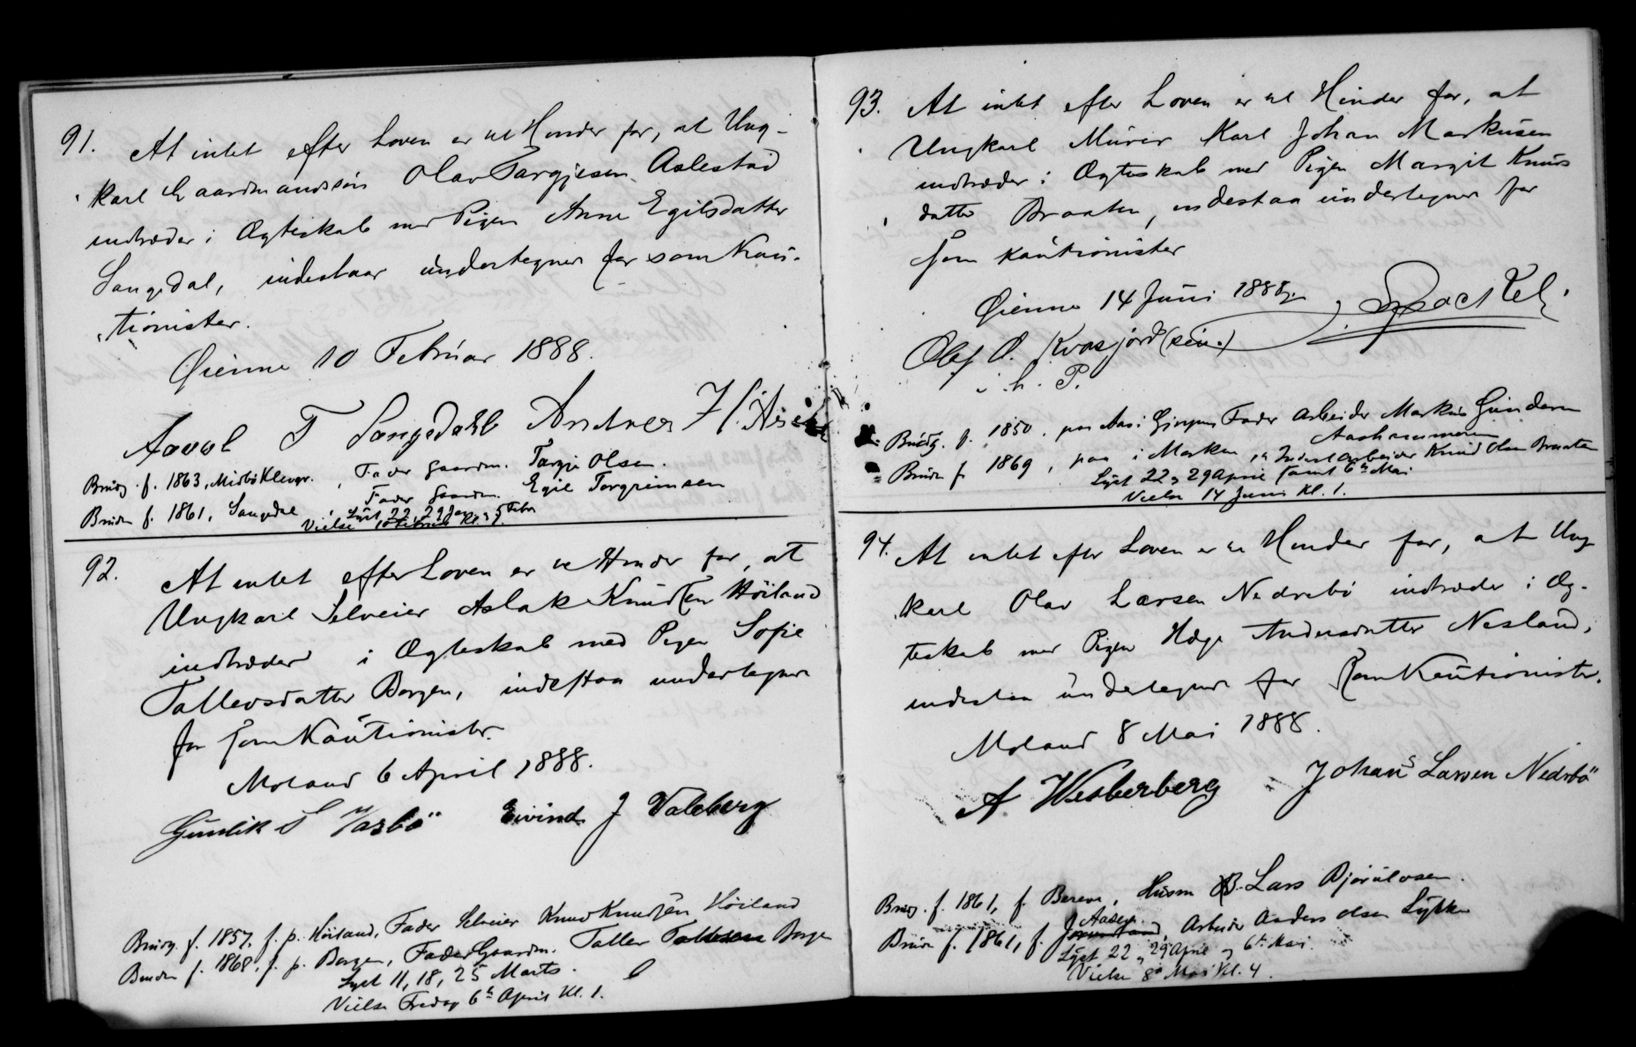 91. At intet efter Loven er til Hinder for, at Ung-
karl Gaardmandssøn Olav Targjesen Aslestad
indtræder i Ægteskab med Pigen Anne Egilsdatter
Langedal, indestaar undertegnede for som Kau-
tionister.
Øienne 10 Februar 1888.
Aavol T Langedahl Andreas H.
Brudg. f. 1863, Midbø Klevgr. , Fader Gaardm. Targje Olsen.
Bruden f. 1861, Langedal , Fader Gaardm. Egil Torgrimsen
Lyst 22, 29 Jan, 5 Febr
Vielse
92. At intet efter Loven er til Hinder for, at
Ungkarl Selveier Aslak Knudsen Høiland
indtræder i Ægteskab med Pigen Sofie
Tallevsdatter Borgen, indestaa undertegnede
for som Kautionister.
Moland 6 April 1888.
Gunlik S Vasbø Eivind J Valeberg
Brudg. f. 1857, f. p. Høiland, Fader Selveier Knud Knudsen Høiland
Bruden f. 1868, f. p. Borgen, Fader Gaardm. Tallev Tallevsen Borgen
Lyst 11, 18, 25 Marts.
Vielse Fredag 6te April Kl. 1.
93. At intet efter Loven er til Hinder for, at
Ungkarl Murer Karl Johan Markusen
indtræder i Ægteskab med Pigen Margit Knuds
datter Braaten, indestaa undertegnede for
som kautionister
Øienne 14 Juni 1888
Olaf O. Kvasjord (sen.)
i. h. P.
Brudg. f. 1850, Fader Arbeider Markus Gundersen
Bruden f 1869, paa i Marken, Arbeider Knud Olsen Braaten
Lyst 22, 29 April samt 6te Mai
Vielse 14 Juni Kl. 1.
94. At intet efter Loven er til Hinder for, at Ung
karl Olav Larsen Nedrebø indtræder i Æg-
teskab med Pigen Hæge Andersdatter Nesland,
indestaa undertegnede for som Kautionister.
Moland 8 Mai 1888.
A. Westerberg Johans Larsen Nedrebø
Brudg. f. 1861, f. , Husm Lars Bjørulvsen.
Bruden f. 1861, f. , Arbeider Anders Olsen
Lyst 22, 29 April og 6te Mai.
Vielse 8de Mai Kl. 4.